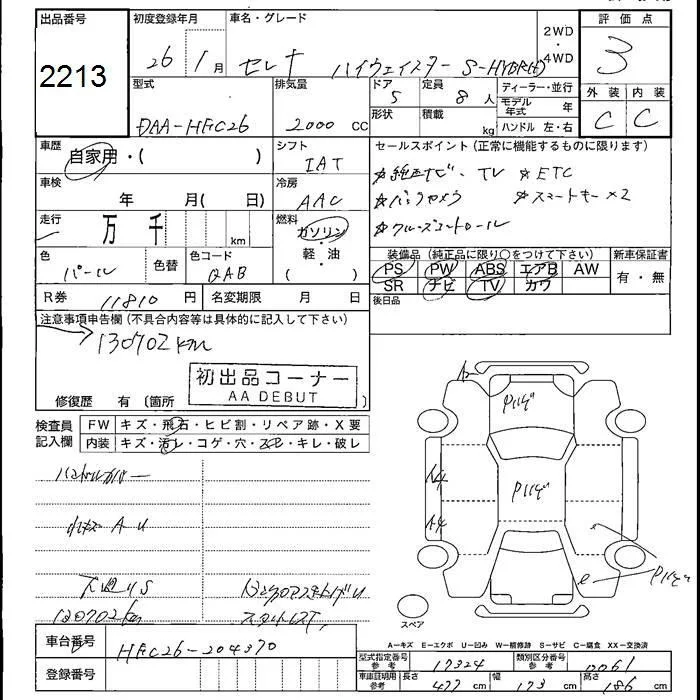 出品番号
2213
初度登録年月
26年 1月
車名・グレード
セレナ ハイウェイスター S-HYBRID
2WD
・
4WD
評価点
3
外装 内装
C C
型式
DAA-HFC26
排気量
2000 CC
ドア
5
定員
8人
ディーラー・並行
モデル年式 年
ハンドル 左・右
形状
積載
kg
車歴
自家用・( )
シフト
IAT
セールスポイント (正常に機能するものに限ります)
☆純正ナビ、TV ☆ETC
☆バックカメラ ☆スマートキー×2
☆クルーズコントロール
車検
年 月( 日)
冷房
AAC
走行
万 千 km
燃料
ガソリン
軽・油
( )
色
パール
色替
色コード
QAB
装備品 (純正品に限り○をつけて下さい)
PS PW ABS エアB AW
SR ナビ TV カワ
新車保証書
有・無
R券 11810 円
名変期限 月 日
後日品
注意事項申告欄 (不具合内容等は具体的に記入して下さい)
130702km
初出品コーナー
AA DEBUT
修復歴 有 (箇所 )
検査員
記入欄
FW キズ・飛石・ヒビ割・リペア跡・X要
内装 キズ・汚レ・コゲ・穴・スレ・キレ・破レ
ハンドルカバー
A U
下廻りS
130702km
スタットレス
A4
A4
Pハゲ
Pハゲ
Pハゲ
e
スペア
車台番号
HFC26-204370
登録番号
A−キズ E−エクボ U−凹み W−補修跡 S−サビ C−腐食 XX−交換済
型式指定番号
参考
17324
類別区分番号
参考
0061
車庫証明用
参考
長さ 477 cm
幅 173 cm
高さ 186 cm